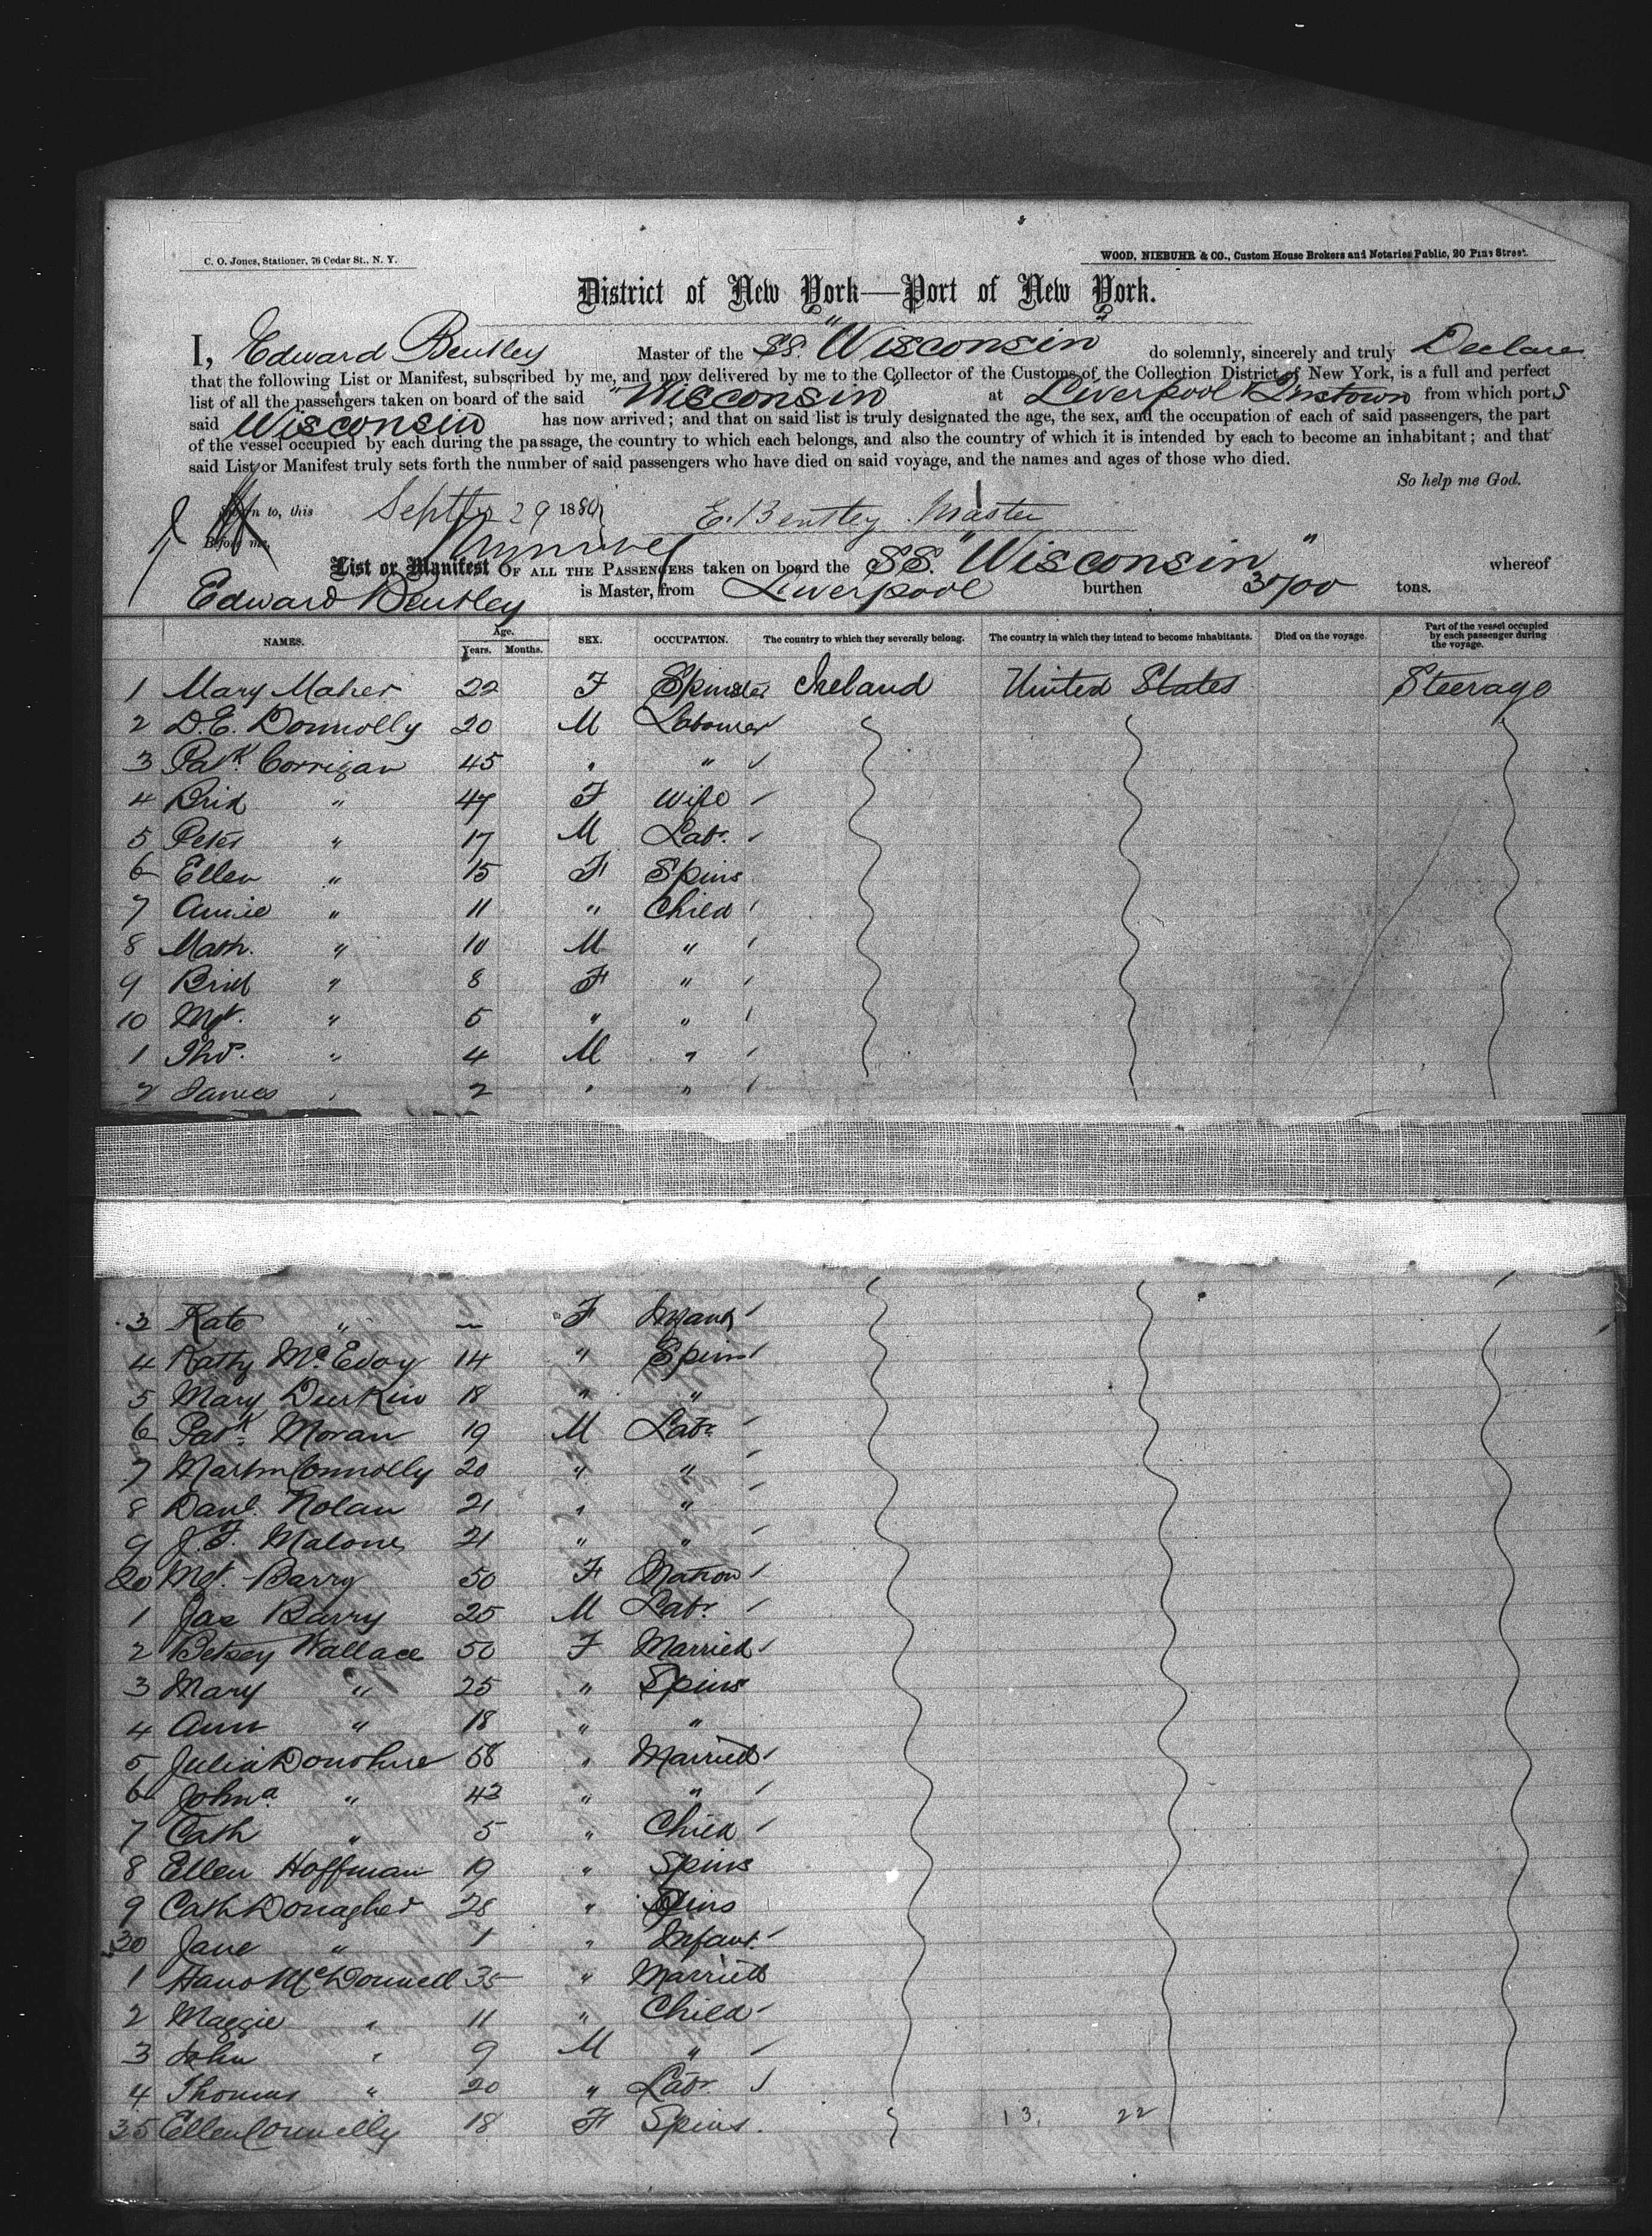 C. O. Jones, Stationer, 76 Cedar St., N. Y.
WOOD, NIEBUHR & CO., Custom House Brokers and Notaries Public, 20 Pine Street.
District of New York—Port of New York.
I, Edward Bentley Master of the SS. "Wisconsin" do solemnly, sincerely and truly Declare
that the following List or Manifest, subscribed by me, and now delivered by me to the Collector of the Customs of the Collection District of New York, is a full and perfect
list of all the passengers taken on board of the said "Wisconsin" at Liverpool & Qnstown from which ports
said Wisconsin has now arrived; and that on said list is truly designated the age, the sex, and the occupation of each of said passengers, the part
of the vessel occupied by each during the passage, the country to which each belongs, and also the country of which it is intended by each to become an inhabitant; and that
said List or Manifest truly sets forth the number of said passengers who have died on said voyage, and the names and ages of those who died.
So help me God.
Sworn to, this Septbr 29 1880 E. Bentley Master
Before me,
List or Manifest OF ALL THE PASSENGERS taken on board the SS. "Wisconsin" whereof
Edward Bentley is Master, from Liverpool burthen 3700 tons.
NAMES. Age. Years. Months. SEX. OCCUPATION. The country to which they severally belong. The country in which they intend to become inhabitants. Died on the voyage. Part of the vessel occupied by each passenger during the voyage.
1 Mary Maher 22 F Spinster Ireland United States Steerage
2 D.E. Donnolly 20 M Labourer
3 Patk. Corrigan 45 " "
4 Brid " 47 F Wife
5 Peter " 17 M Labr.
6 Ellen " 15 F Spins
7 Annie " 11 " Child
8 Math. " 10 M "
9 Brid " 8 F "
10 Mgt. " 5 " "
1 Thos. " 4 M "
2 James " 2 " "
3 Kate " F Infant
4 Kathy McEvoy 14 " Spins
5 Mary Durkin 18 " "
6 Patk. Moran 19 M Labr.
7 Martin Connolly 20 " "
8 Danl. Nolan 21 " "
9 J.F. Malone 21 " "
20 Mgt. Barry 50 F Matron
1 Jas Barry 25 M Labr.
2 Betsey Wallace 50 F Married
3 Mary " 25 " Spins
4 Ann " 18 " "
5 Julia Donohue 58 " Married
6 Johna. " 43 " "
7 Cath " 5 " Child
8 Ellen Hoffman 19 " Spins
9 Cath Donagher 28 " Spins
30 Jane " 1 " Infant
1 McDonnell 35 " Married
2 Maggie " 11 " Child
3 John " 9 M "
4 Thomas " 20 " Labr
35 Ellen Connelly 18 F Spins. 13. 22